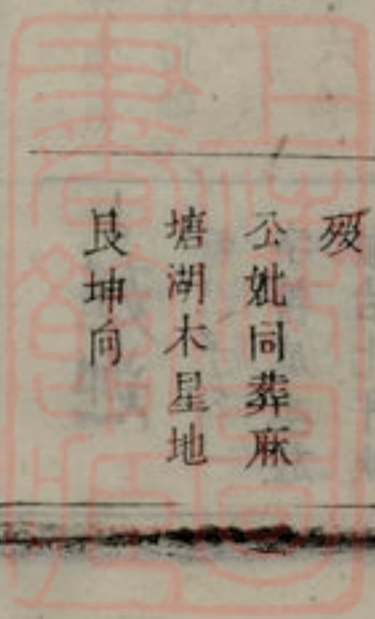 歿
公妣同葬麻
塘湖木星地
艮坤向